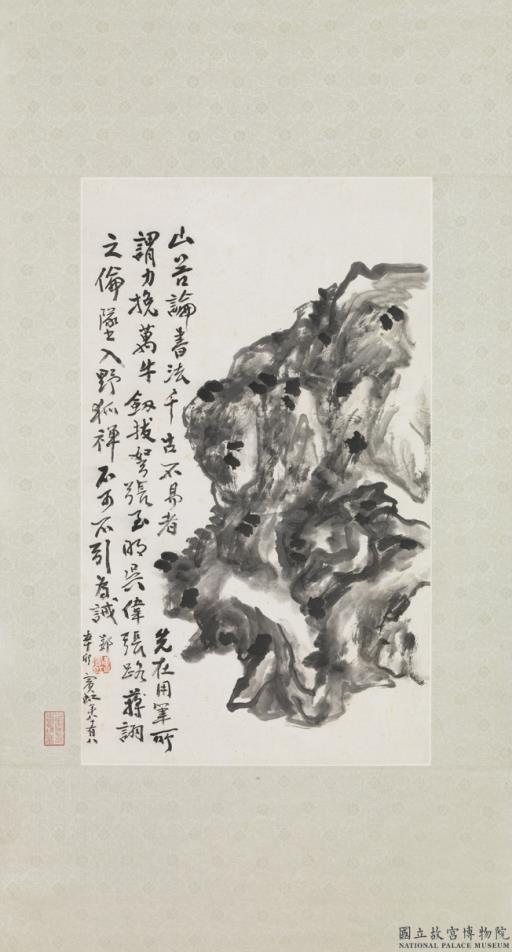 山谷論書法千古不易者
先在用筆所
謂力挽萬牛劔拔弩張至明吳偉張路蔣詡
之倫墜入野狐禪不可不引為誡
辛卯賓虹年八十有八
國立故宮博物院
NATIONAL PALACE MUSEUM